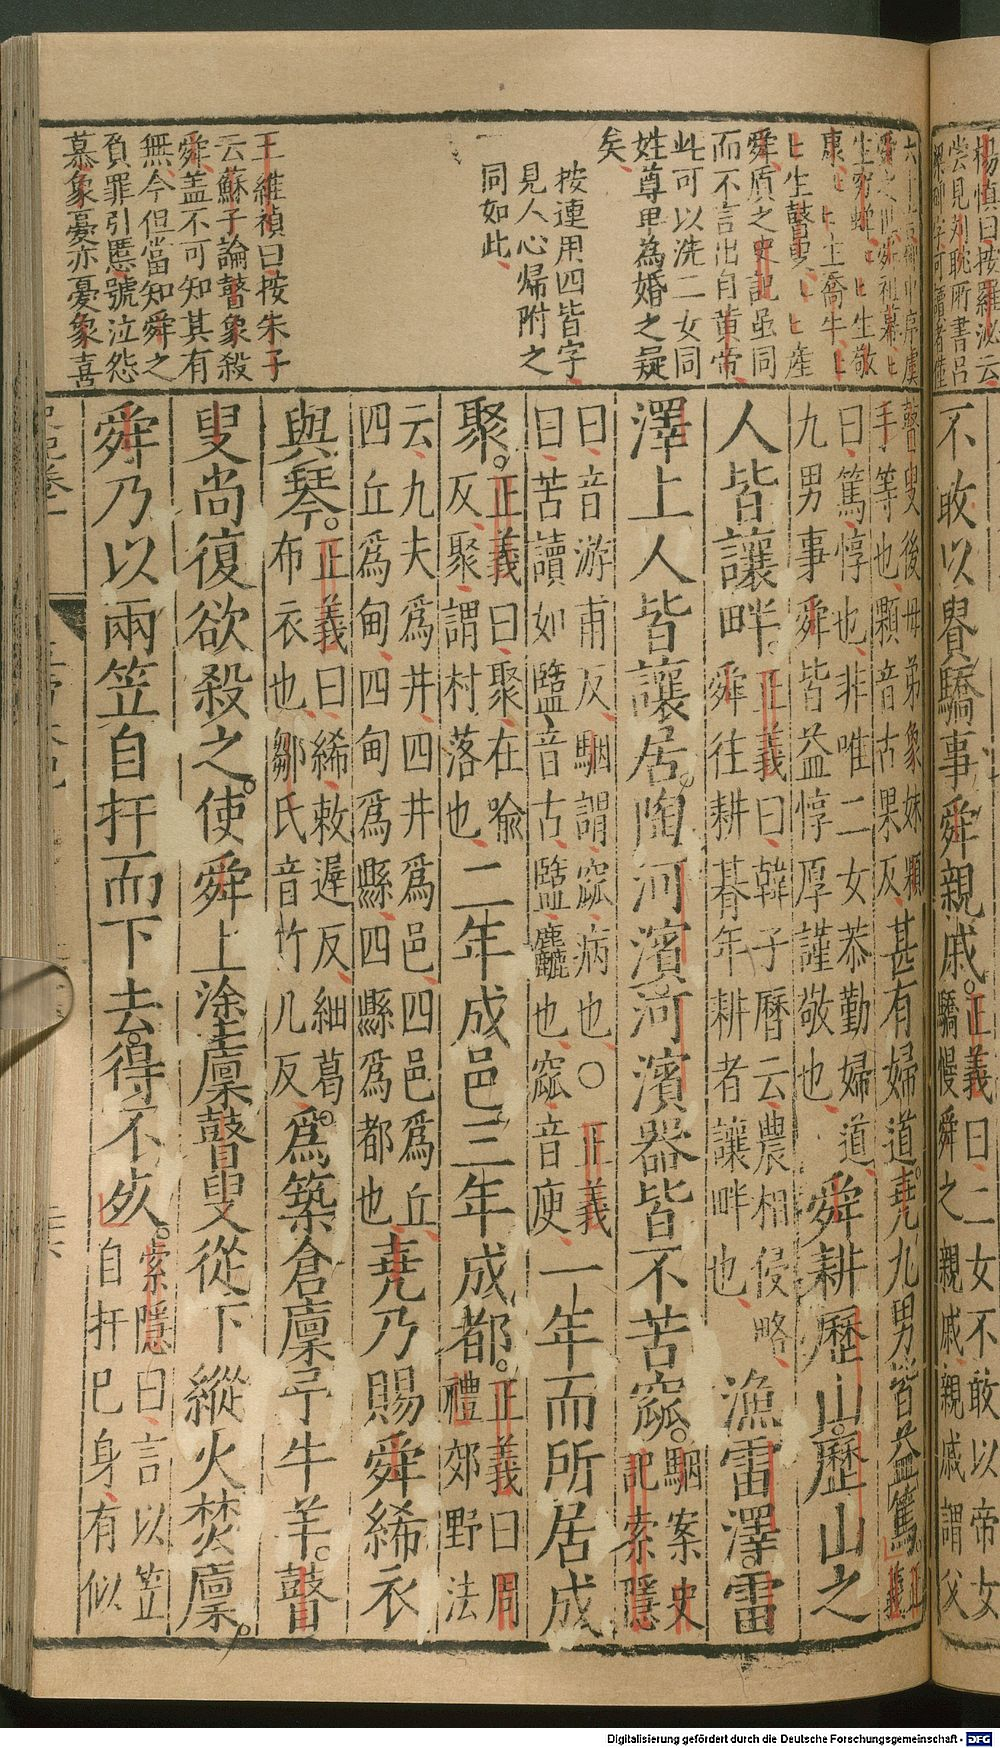 楊慎曰按羅泌云
嘗見列眈所書呂
梁碑字可讀者僅
不敢以貴驕事舜親戚。正義曰二女不敢以帝女
驕慢舜之親戚親戚謂父
生窮蟬ヒヒ生敬
康ヒヒ生喬牛ヒ
ヒ生瞽叟ヒヒ產
舜質之史記虽同
而不言出自黄帝
此可以洗二女同
姓尊卑為婚之疑
矣
按連用四皆字
見人心帰附之
同如此
王維禎曰按朱子
云蘇子論瞽象殺
舜盖不可知其有
無今但當知舜之
負罪引慝號泣怨
慕象憂亦憂象喜
瞽叟後母弟象妹顆
手等也顆音古果反
甚有婦道。堯九男皆益篤。正義
曰篤惇也非唯二女恭勤婦道
九男事舜皆益惇厚謹敬也
舜耕歷山。歷山之
人皆讓畔。正義曰韓子曆云農相侵略
舜往耕朞年耕者讓畔也
漁雷澤。雷
澤上人皆讓居。陶河濱。河濱器皆不苦窳。駰案史
記索隱
曰音游甫反駰謂窳病也○正義
曰苦讀如盬音古盬麤也窳音庾
一年而所居成
聚。正義曰聚在喻
反聚謂村落也
二年成邑。三年成都。正義曰周
禮郊野法
云九夫爲井四井爲邑四邑爲丘
四丘爲甸四甸爲縣四縣爲都也
堯乃賜舜絺衣
與琴。正義曰絺敕遲反細葛
布衣也鄒氏音竹几反
爲築倉廩予牛羊。瞽
叟尚復欲殺之。使舜上塗廩瞽叟從下縱火焚廩。
舜乃以兩笠自扞而下去得不死。索隱曰言以笠
自扞巳身有似
史記卷一
五帝本紀
二六
Digitalisierung gefördert durch die Deutsche Forschungsgemeinschaft - DFG